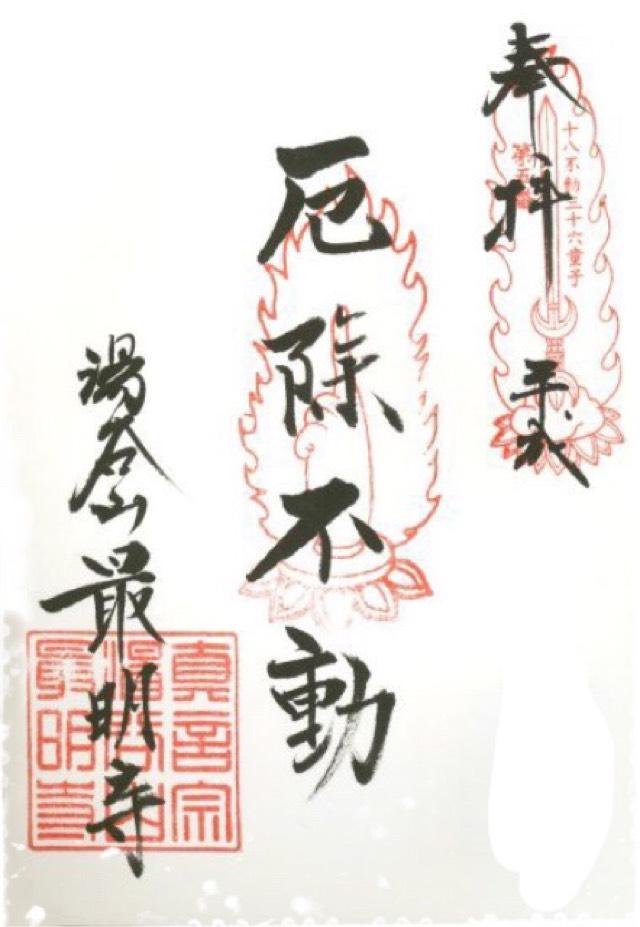 奉拝
十八不動三十六童子
第五番
平成
厄除不動
湯谷山最明寺
真言宗
湯谷山
最明寺